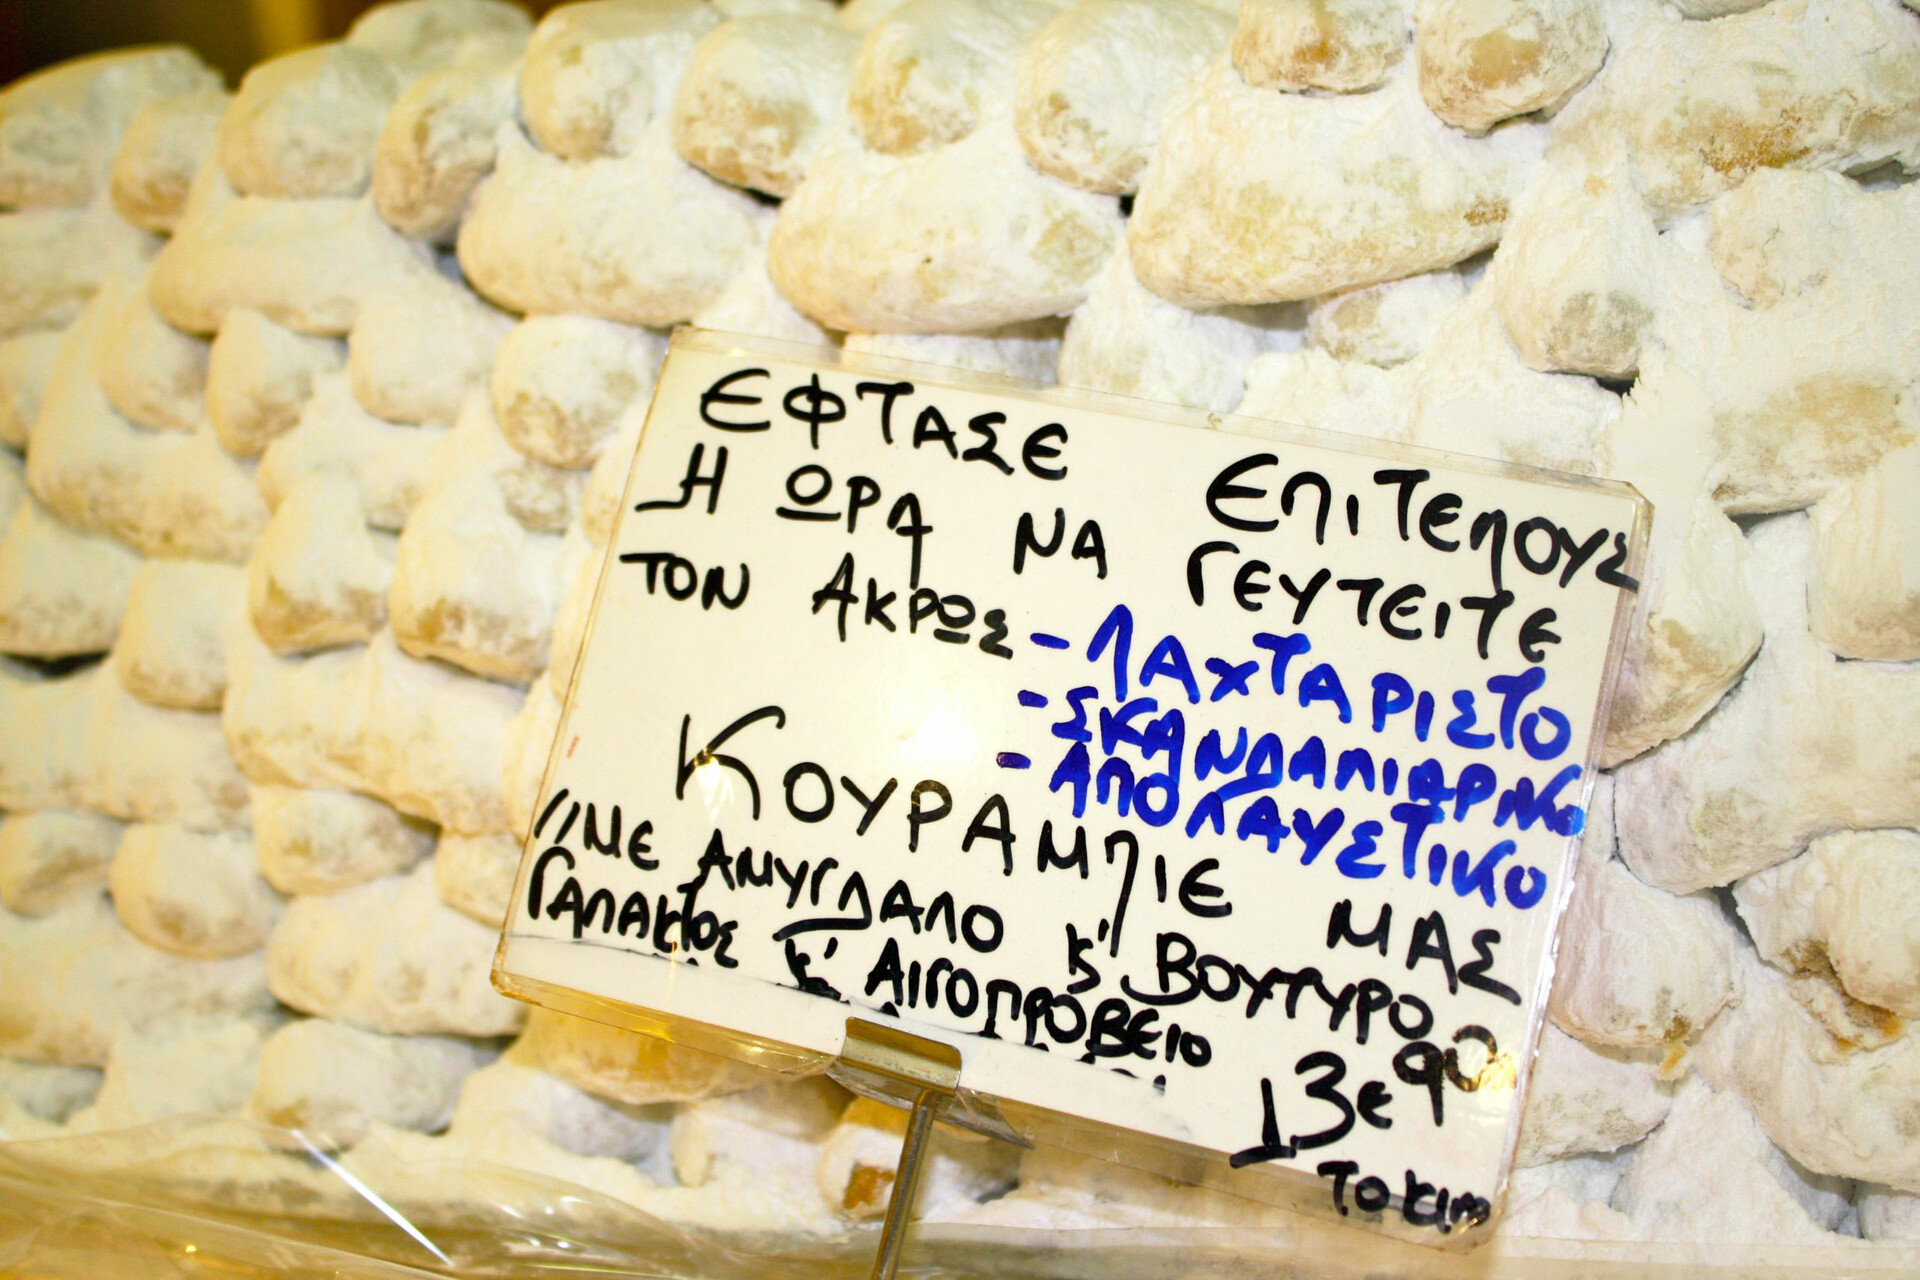 ΕΦΤΑΣΕ ΕΠΙΤΕΛΟΥΣ
Η ΩΡΑ ΝΑ ΓΕΥΤΕΙΤΕ
ΤΟΝ ΑΚΡΩΣ
- ΛΑΧΤΑΡΙΣΤΟ
- ΣΚΑΝΔΑΛΙΑΡΙΚΟ
- ΑΠΟΛΑΥΣΤΙΚΟ
ΚΟΥΡΑΜΠΙΕ ΜΑΣ
"ΜΕ ΑΜΥΓΔΑΛΟ Κ' ΒΟΥΤΥΡΟ
ΓΑΛΑΚΤΟΣ Κ' ΑΙΓΟΠΡΟΒΕΙΟ
13ε90
ΤΟ ΚΙΛΟ